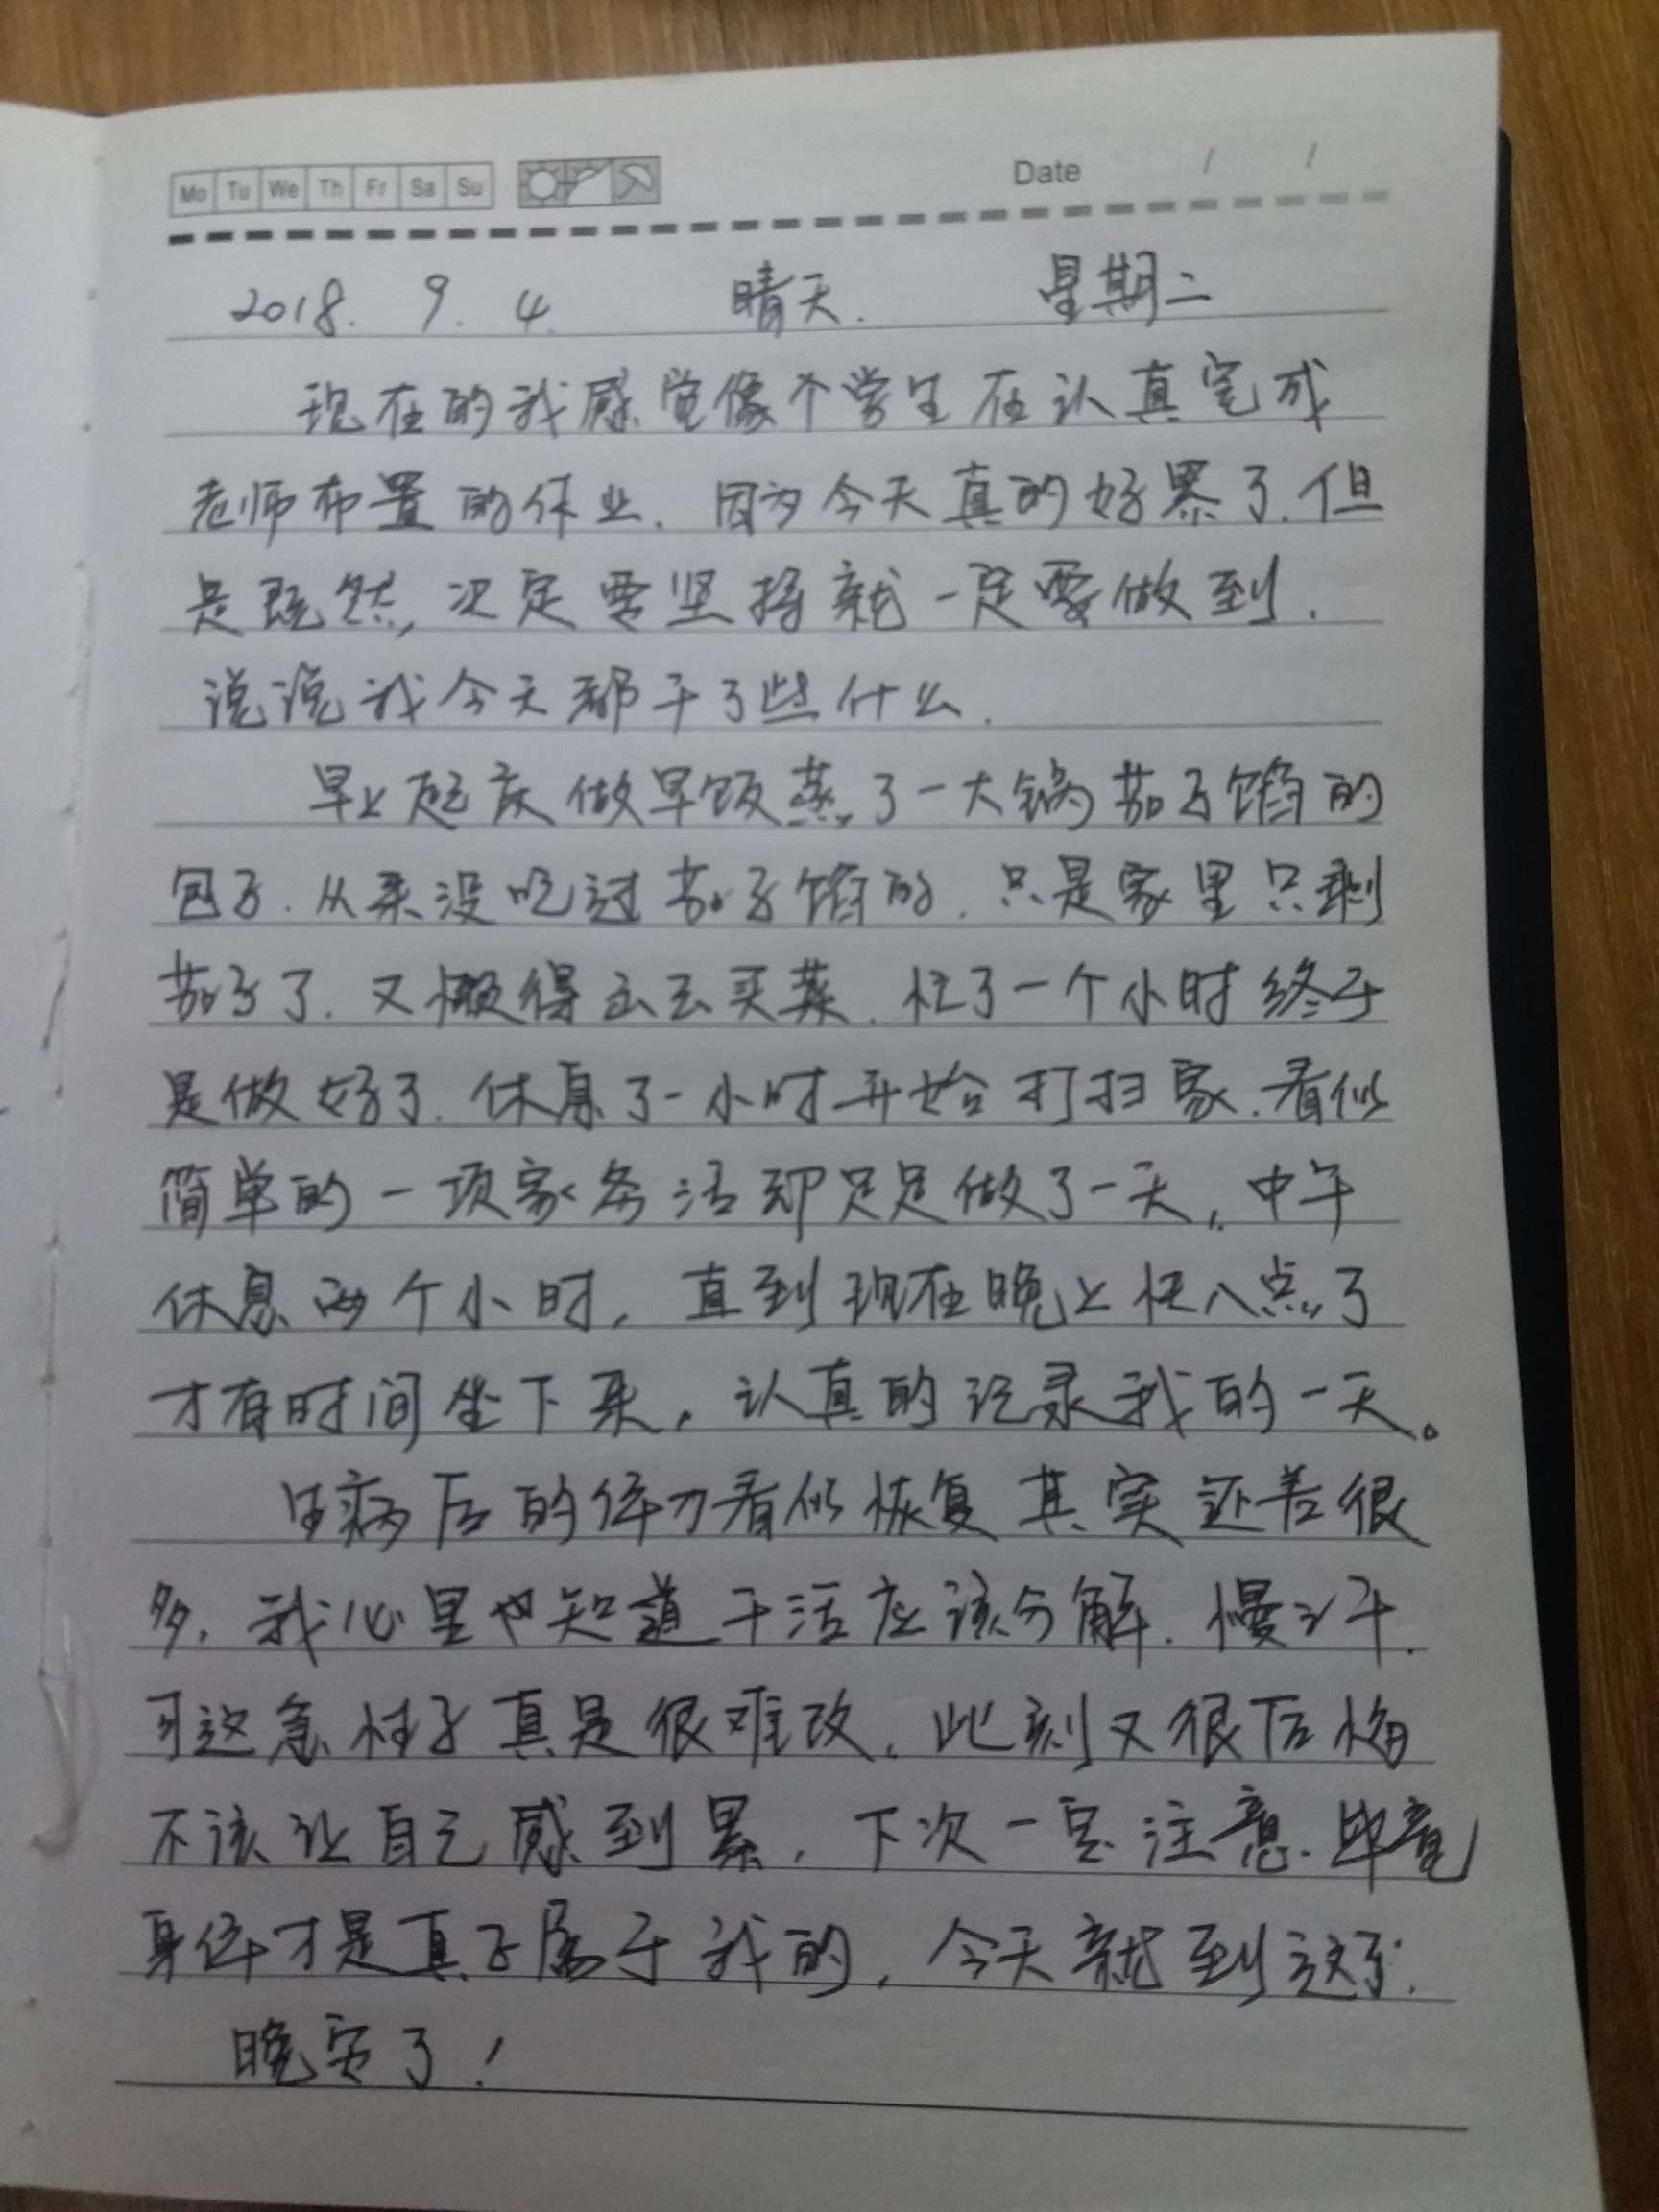 Mo Tu We Th Fr Sa Su Date / /
2018. 9. 4. 晴天. 星期二
现在的我感觉像个学生在认真完成
老师布置的作业. 因为今天真的好累了. 但
是既然, 决定要坚持就一定要做到.
说说我今天都干了些什么.
早上起床做早饭蒸了一大锅茄子馅的
包子. 从来没吃过茄子馅的. 只是家里只剩
茄子了. 又懒得出去买菜. 忙了一个小时终于
是做好了. 休息了一小时开始打扫家. 看似
简单的一项家务活却足足做了一天, 中午
休息两个小时, 直到现在晚上快八点了
才有时间坐下来, 认真的记录我的一天。
生病后的体力看似恢复其实还差很
多, 我心里也知道干活应该分解. 慢之干.
可这急性子真是很难改, 此刻又很后悔
不该让自己感到累, 下次一定注意. 毕竟
身体才是真正属于我的, 今天就到这了.
晚安了!